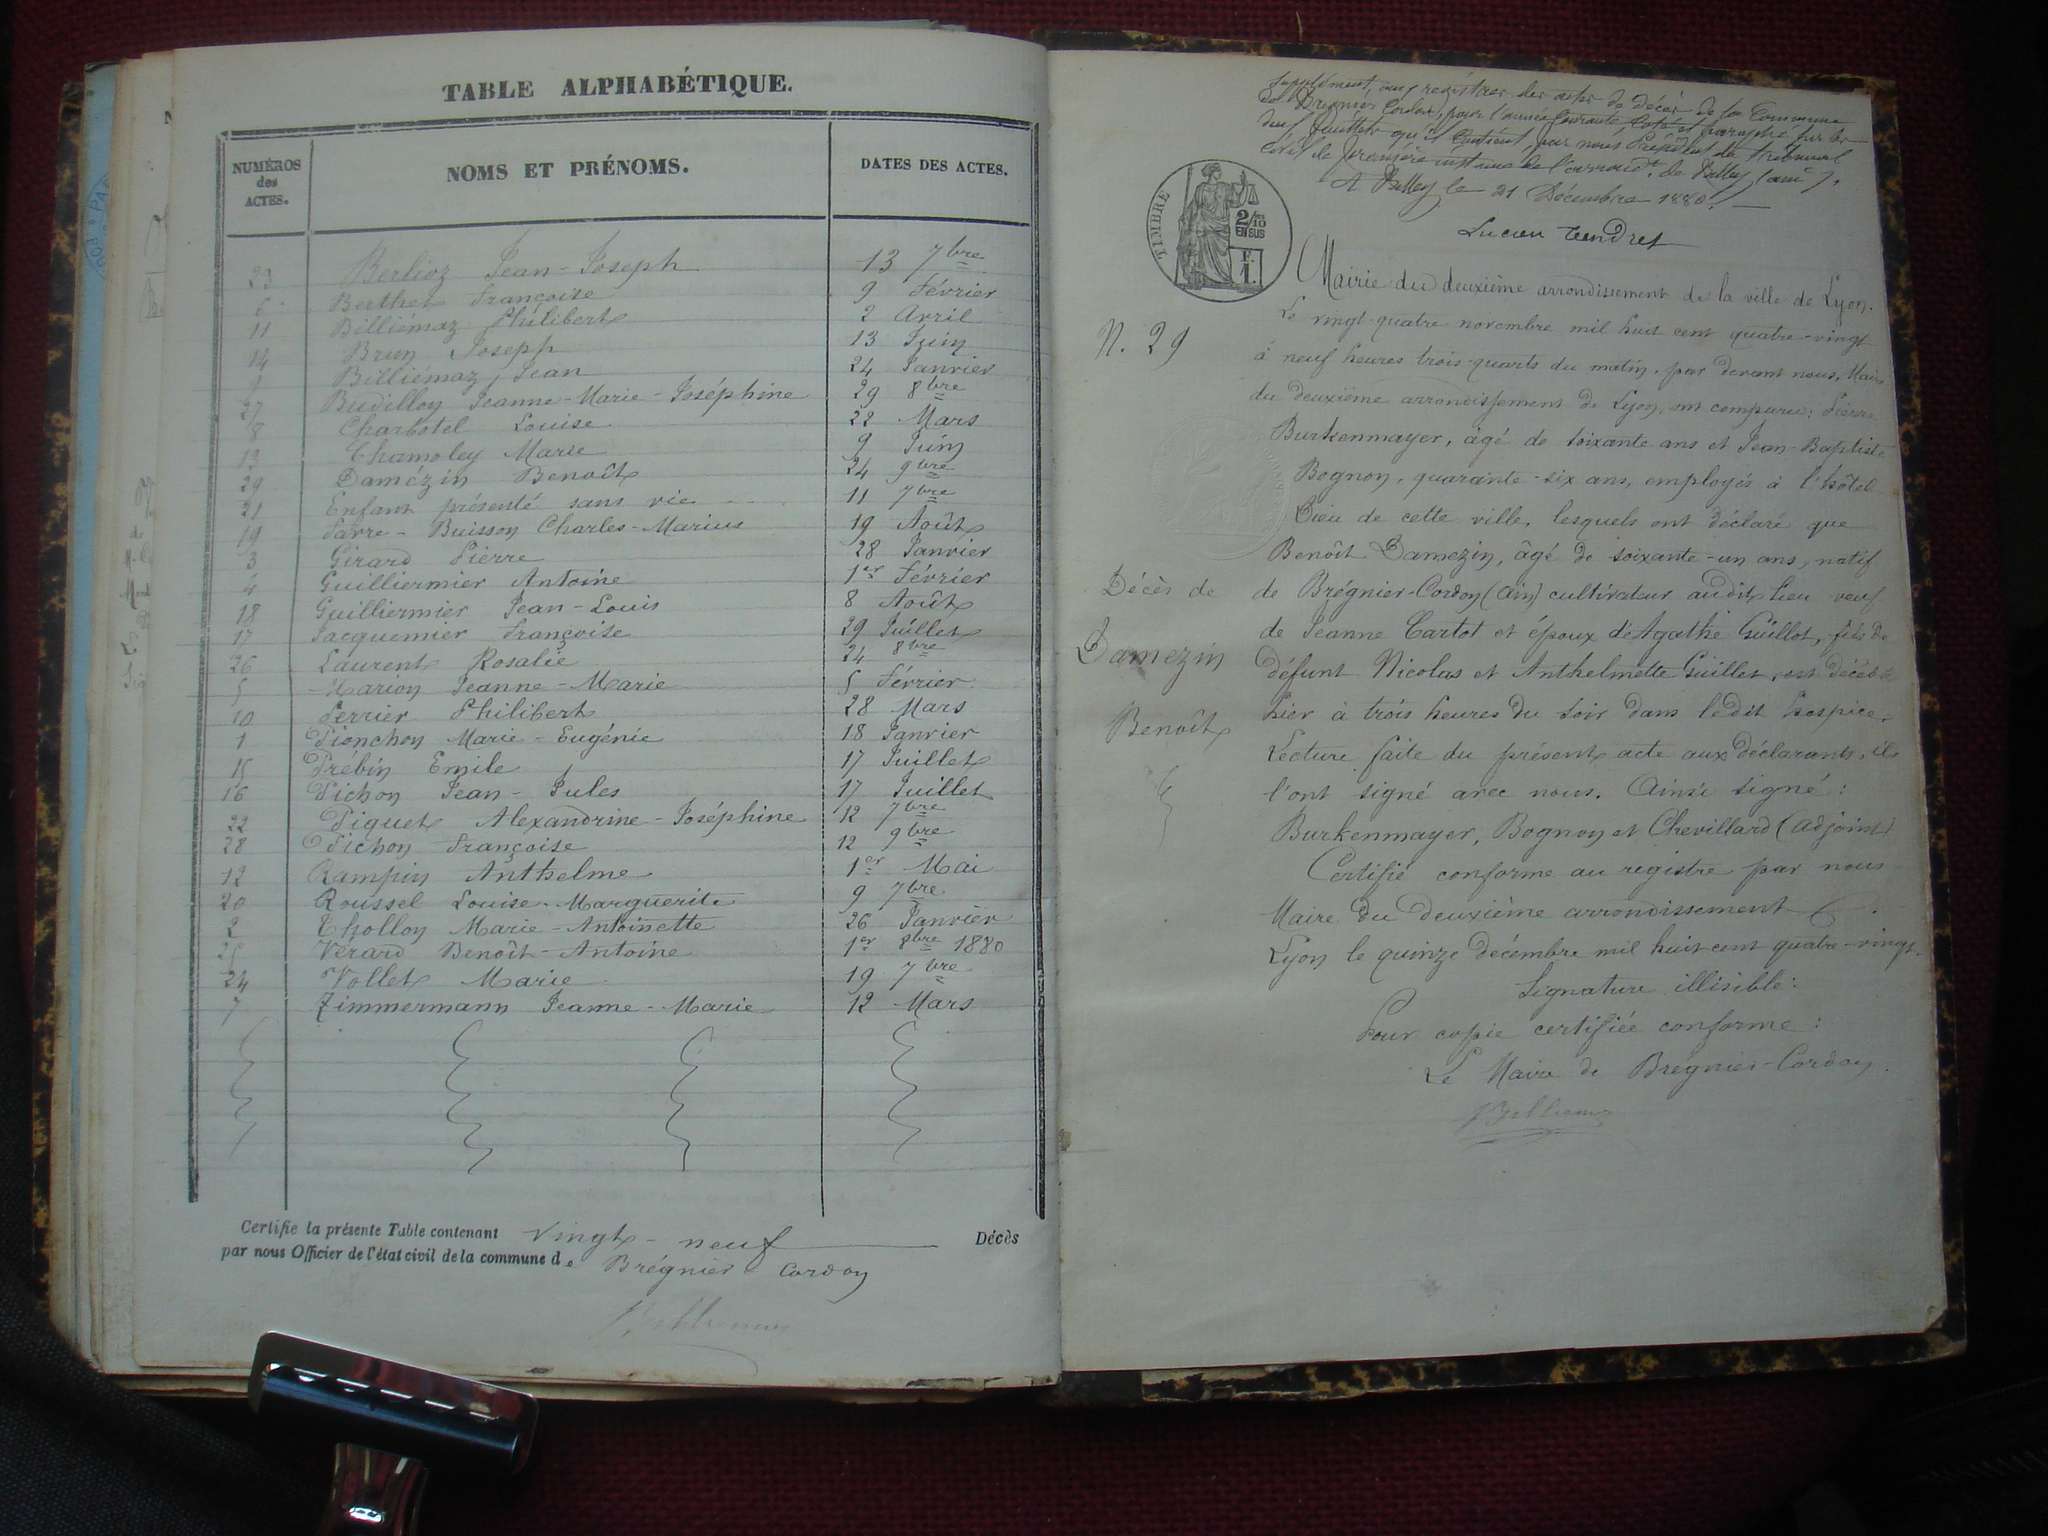 TABLE ALPHABÉTIQUE.
NUMÉROS des ACTES. NOMS ET PRÉNOMS. DATES DES ACTES.
23 Berlioz Jean-Joseph 13 7bre
6 Berthet Françoise 9 Février
11 Billiémaz Philibert 2 Avril
14 Brun Joseph 13 Juin
Billiémaz, Jean 24 Janvier
27 Budillon Jeanne-Marie-Joséphine 29 8bre
8 Charbotel Louise 22 Mars
13 Chamoley Marie 9 Juin
29 Damézin Benoît 24 9bre
21 Enfant présenté sans vie 11 7bre
19 Favre-Buisson Charles-Marius 19 Août
3 Girard Pierre 28 Janvier
4 Guilliermier Antoine 1er Février
18 Guilliermier Jean-Louis 8 Août
17 Jacquemier Françoise 29 Juillet
26 Laurent Rosalie 24 8bre
5 Marion Jeanne-Marie 5 Février
10 Perrier Philibert 28 Mars
1 Pionchon Marie-Eugénie 18 Janvier
15 Prébin Emile 17 Juillet
16 Pichon Jean-Jules 17 Juillet
22 Piquet Alexandrine-Joséphine 12 7bre
28 Pichon Françoise 12 9bre
12 Rampin Anthelme 1er Mai
20 Roussel Louise-Marguerite 9 7bre
2 Thollon Marie-Antoinette 26 Janvier
25 Vérard Benoît-Antoine 1er 8bre 1880
24 Vollet Marie 19 7bre
7 Zimmermann Jeanne-Marie 12 Mars
Certifie la présente Table contenant vingt-neuf Décès
par nous Officier de l'état civil de la commune de Brégnier-Cordon
Supplément aux registres des actes de Décès de la Commune
de Brégnier Cordon, pour l'année courante Coté et paraphé sur les
deux feuillets qu'il contient, par nous Président du tribunal
Civil de première instance de l'arrondt. de Belley (ain).
A Belley le 21 Décembre 1880.
Lucien Tendret
TIMBRE
2/10 EN SUS
F. 1.
Mairie du deuxième arrondissement de la ville de Lyon.
N. 29
Le vingt-quatre novembre mil huit cent quatre-vingt
à neuf heures trois-quarts du matin, par devant nous, Maire
du deuxième arrondissement de Lyon, ont comparu: Pierre
Burkenmayer, âgé de soixante ans et Jean-Baptiste
Bognon, quarante-six ans, employés à l'hôtel
Dieu de cette ville, lesquels ont déclaré que
Benoît Damezin, âgé de soixante-un ans, natif
Décès de
de Brégnier-Cordon (Ain) cultivateur audit lieu veuf
de Jeanne Cartot et époux d'Agathe Guillot, fils de
Damezin
défunt Nicolas et Anthelmette Guillet, est décédé
Benoît
hier à trois heures du soir dans ledit hospice.
Lecture faite du présent acte aux déclarants, ils
l'ont signé avec nous. Ainsi signé:
Burkenmayer, Bognon et Chevillard (adjoint)
Certifié conforme au registre par nous
Maire du deuxième arrondissement
Lyon le quinze décembre mil huit-cent quatre-vingt.
Signature illisible:
Pour copie certifiée conforme:
Le Maire de Brégnier-Cordon